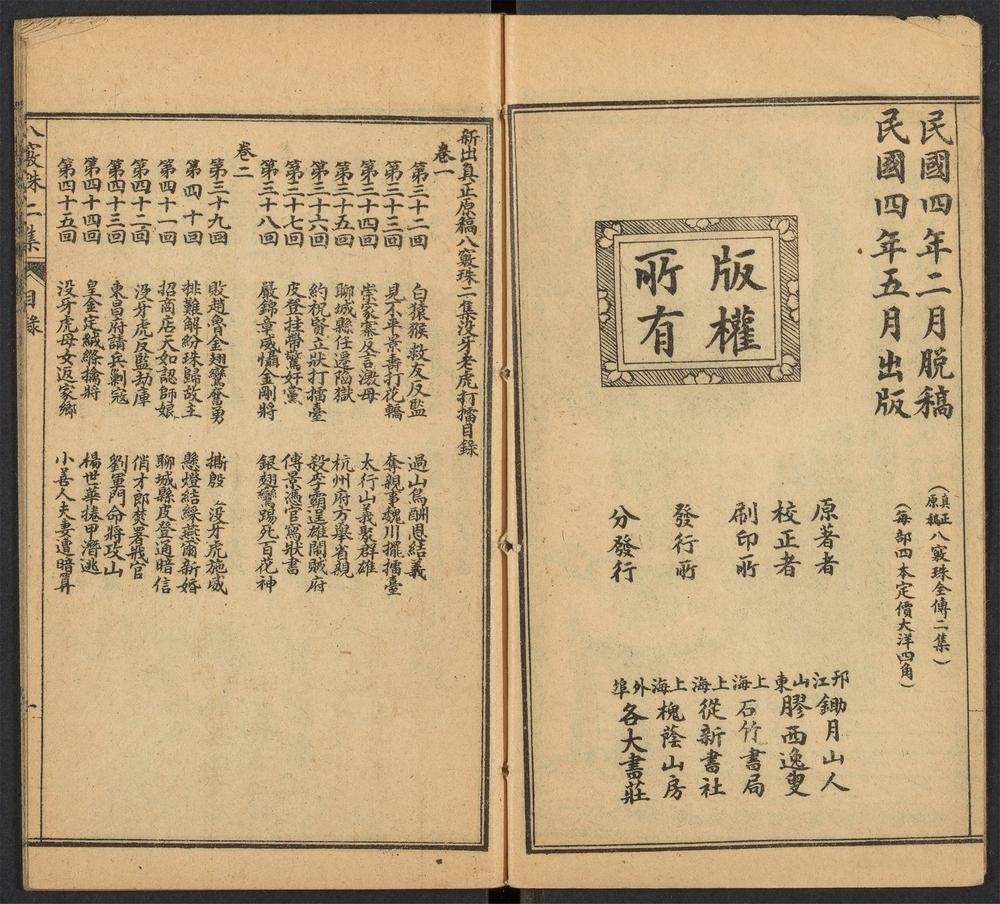 民國四年二月脱稿
民國四年五月出版
（真正原稿八竅珠全傳二集）
（每部四本定價大洋四角）
版權
所有
原著者 邗江鋤月山人
校正者 山東膠西逸叟
刷印所 上海石竹書局
發行所 上海從新書社
上海槐蔭山房
分發行 外埠各大書莊
新出真正原稿八竅珠二集没牙老虎打擂目錄
卷一
第三十二回 白猿猴救友反監 過山鳥酬恩結義
第三十三回 見不平景壽打花轎 奪親事魏川擺擂臺
第三十四回 崇家寨反言激母 太行山義聚群雄
第三十五回 聊城縣任遷陷獄 杭州府方舉省親
第三十六回 約祝賢立狀打擂臺 殺李霸逞雄鬧賊府
第三十七回 皮登挂帶驚奸黨 傳景憑官寫狀書
第三十八回 嚴錦章威懾金剛將 銀翅鸞踢死百花神
卷二
第三十九回 敗趙魯金翅鸞奮勇 撕殷 没牙虎施威
第四十回 排難解紛珠歸故主 懸燈結綵燕爾新婚
第四十一回 招商店天如認師娘 聊城縣皮登通暗信
第四十二回 没牙虎反監劫庫 俏才郎焚署戕官
第四十三回 東昌府請兵剿寇 劉軍門命將攻山
第四十四回 皇金定絨縧擒將 楊世華捲甲潛逃
第四十五回 没牙虎母女返家鄉 小善人夫妻遭暗算
八竅珠二集 目錄 一